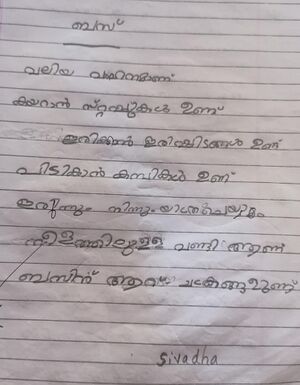 ബസ്
വലിയ വാഹനമാണ്
കയറാൻ സ്റ്റെപ്പുകൾ ഉണ്ട്
ഇരിക്കാൻ ഇരിപ്പിടങ്ങൾ ഉണ്ട്
പിടിക്കാൻ കമ്പികൾ ഉണ്ട്
ഇരുന്നും നിന്നും യാത്രചെയ്യാം
നീളത്തിലുള്ള വണ്ടി ആണ്
ബസിന് ആറ് ചക്രങ്ങളുണ്ട്
Sivadha